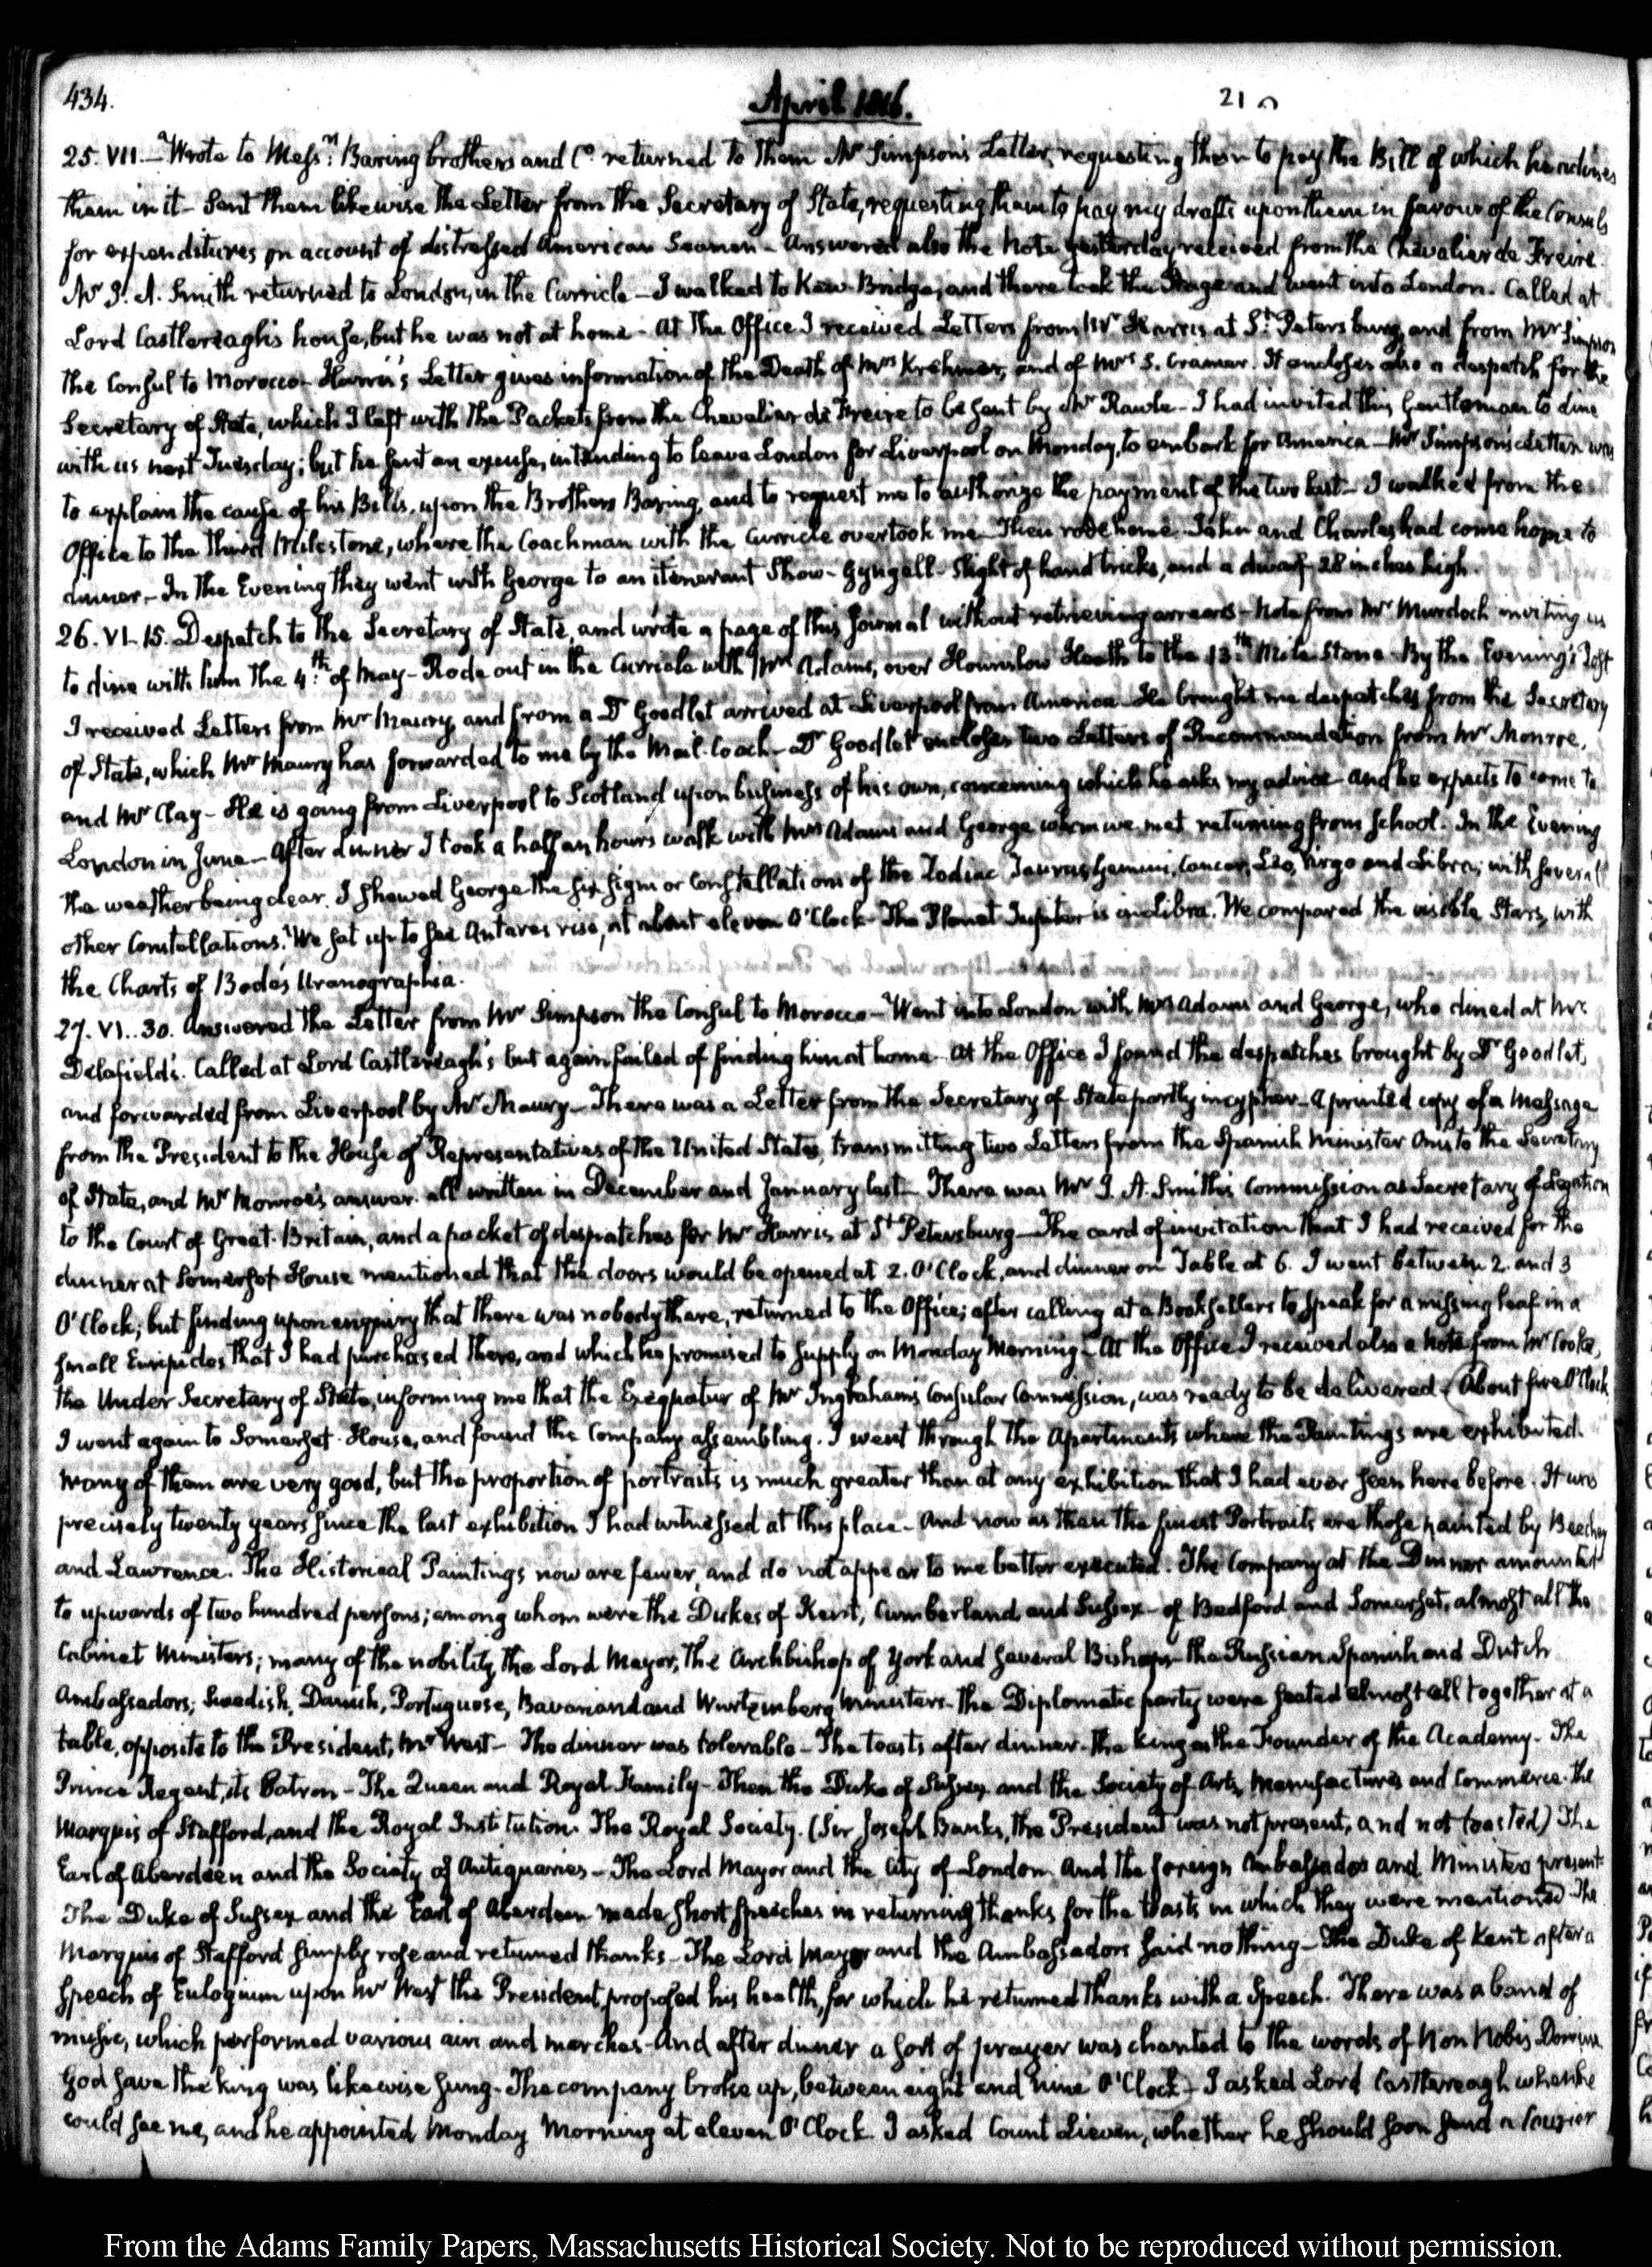 434.
April 1816.
210
25. VII. Wrote to Mess.rs Baring brothers and Co. returned to them Mr Simpson's Letter, requesting them to pay the Bill of which he advises
them in it - Sent them likewise the Letter from the Secretary of State, requesting them to pay my drafts upon them in favour of the Consuls
for expenditures on account of distressed American Seamen - Answered also the Note yesterday received from the Chevalier de Freire.
Mr J. A. Smith returned to London, in the Curricle - I walked to Kew-Bridge, and there took the Stage and went into London. Called at
Lord Castlereagh's house, but he was not at home - At the Office I received Letters from Mr Harris at St. Petersburg, and from Mr Simpson
the Consul to Morocco - Harris's Letter gives information of the Death of Mrs Krehmer, and of Mrs S. Cramer. It encloses also a despatch for the
Secretary of State, which I left with the Packets from the Chevalier de Freire to be sent by Mr Rawle - I had invited this Gentleman to dine
with us next Tuesday; but he sent an excuse, intending to leave London for Liverpool on Monday, to embark for America - Mr Simpson's Letter was
to explain the cause of his Bills, upon the Brothers Baring, and to request me to authorize the payment of the two last - I walked from the
Office to the Third Milestone, where the Coachman with the Curricle overtook me. Then rode home. John and Charles had come home to
dinner - In the Evening they went with George to an itinerant Show - Gyngell - Slight of hand tricks, and a dwarf 28 inches high.
26. VI. 15. Despatch to the Secretary of State, and wrote a page of this Journal without retrieving arrears - Note from Mr Murdoch inviting us
to dine with him the 4.th of May - Rode out in the Curricle with Mrs Adams, over Hounslow Heath to the 13.th Mile Stone - By the Evening's Post
I received Letters from Mr Maury, and from a Dr Goodlet arrived at Liverpool from America - He brought me despatches from the Secretary
of State, which Mr Maury has forwarded to me by the Mail-Coach - Dr Goodlet encloses two Letters of Recommendation from Mr Monroe,
and Mr Clay - He is going from Liverpool to Scotland upon business of his own, concerning which he asks my advice - and he expects to come to
London in June - After dinner I took a half an hours walk with Mrs Adams and George whom we met returning from School. In the Evening
the weather being clear, I shewed George the six signs or Constellations of the Zodiac Taurus, Gemini, Cancer, Leo, Virgo and Libra; with several
other Constellations. We sat up to see Antares rise, at about eleven O'Clock - The Planet Jupiter is in Libra. We compared the visible Stars, with
the Charts of Bode's Uranographia.
27. VI. 30. Answered the Letter from Mr Simpson the Consul to Morocco - Went into London with Mrs Adams and George, who dined at Mr
Delafield's. Called at Lord Castlereagh's but again failed of finding him at home - At the Office I found the despatches brought by Dr Goodlet,
and forwarded from Liverpool by Mr Maury - There was a Letter from the Secretary of State partly in cypher - A printed copy of a Message
from the President to the House of Representatives of the United States, transmitting two Letters from the Spanish Minister Onis to the Secretary
of State, and Mr Monroe's answer. all written in December and January last - There was Mr J. A. Smith's Commission as Secretary of Legation
to the Court of Great-Britain, and a packet of despatches for Mr Harris, at St Petersburg - The card of invitation that I had received for the
dinner at Somerset House mentioned that the doors would be opened at 2. O'Clock, and dinner on Table at 6. I went between 2. and 3
O'Clock; but finding upon enquiry that there was nobody there, returned to the Office; after calling at a Booksellers to speak for a missing leaf in a
small Euripides that I had purchased there, and which he promised to supply on Monday Morning - At the Office I received also a Note from Mr Cooke,
the Under Secretary of State, informing me that the Exequatur of Mr Ingraham's Consular Commission, was ready to be delivered. About five O'Clock
I went again to Somerset-House, and found the Company assembling. I went through the Apartments where the Paintings are exhibited.
Many of them are very good, but the proportion of portraits is much greater than at any exhibition that I had ever seen here before. It was
precisely twenty years since the last exhibition I had witnessed at this place - And now as then the finest Portraits are those painted by Beechey
and Lawrence. The Historical Paintings now are fewer, and do not appear to me better executed. The Company at the Dinner amounted
to upwards of two hundred persons; among whom were the Dukes of Kent, Cumberland and Sussex - of Bedford and Somerset, almost all the
Cabinet Ministers; many of the nobility, the Lord Mayor, the Archbishop of York and several Bishops - the Russian Spanish and Dutch
Ambassadors; Swedish, Danish, Portuguese, Bavarian and Wurtemberg Ministers. The Diplomatic party were seated almost all together at a
table, opposite to the President, Mr West - The dinner was tolerable - The toasts after dinner - the King as the Founder of the Academy - The
Prince Regent, its Patron - The Queen and Royal Family - Then the Duke of Sussex and the Society of Arts, Manufactures and Commerce. the
Marquis of Stafford, and the Royal Institution. The Royal Society. (Sir Joseph Banks, the President was not present, and not toasted) The
Earl of Aberdeen and the Society of Antiquaries - The Lord Mayor and the City of London. And the foreign Ambassadors and Ministers present.
The Duke of Sussex and the Earl of Aberdeen made short speeches in returning thanks for the toasts in which they were mentioned. The
Marquis of Stafford simply rose and returned thanks - The Lord Mayor and the Ambassadors said nothing - The Duke of Kent after a
speech of Eulogium upon Mr West the President, proposed his health, for which he returned thanks with a Speech. There was a band of
music, which performed various airs and marches - And after dinner a sort of prayer was chanted to the words of Non Nobis Domine
God save the King was likewise sung - The company broke up, between eight and nine O'Clock - I asked Lord Castlereagh when he
could see me, and he appointed Monday Morning at eleven O'Clock. I asked Count Lieven, whether he should soon send a Courier
From the Adams Family Papers, Massachusetts Historical Society. Not to be reproduced without permission.